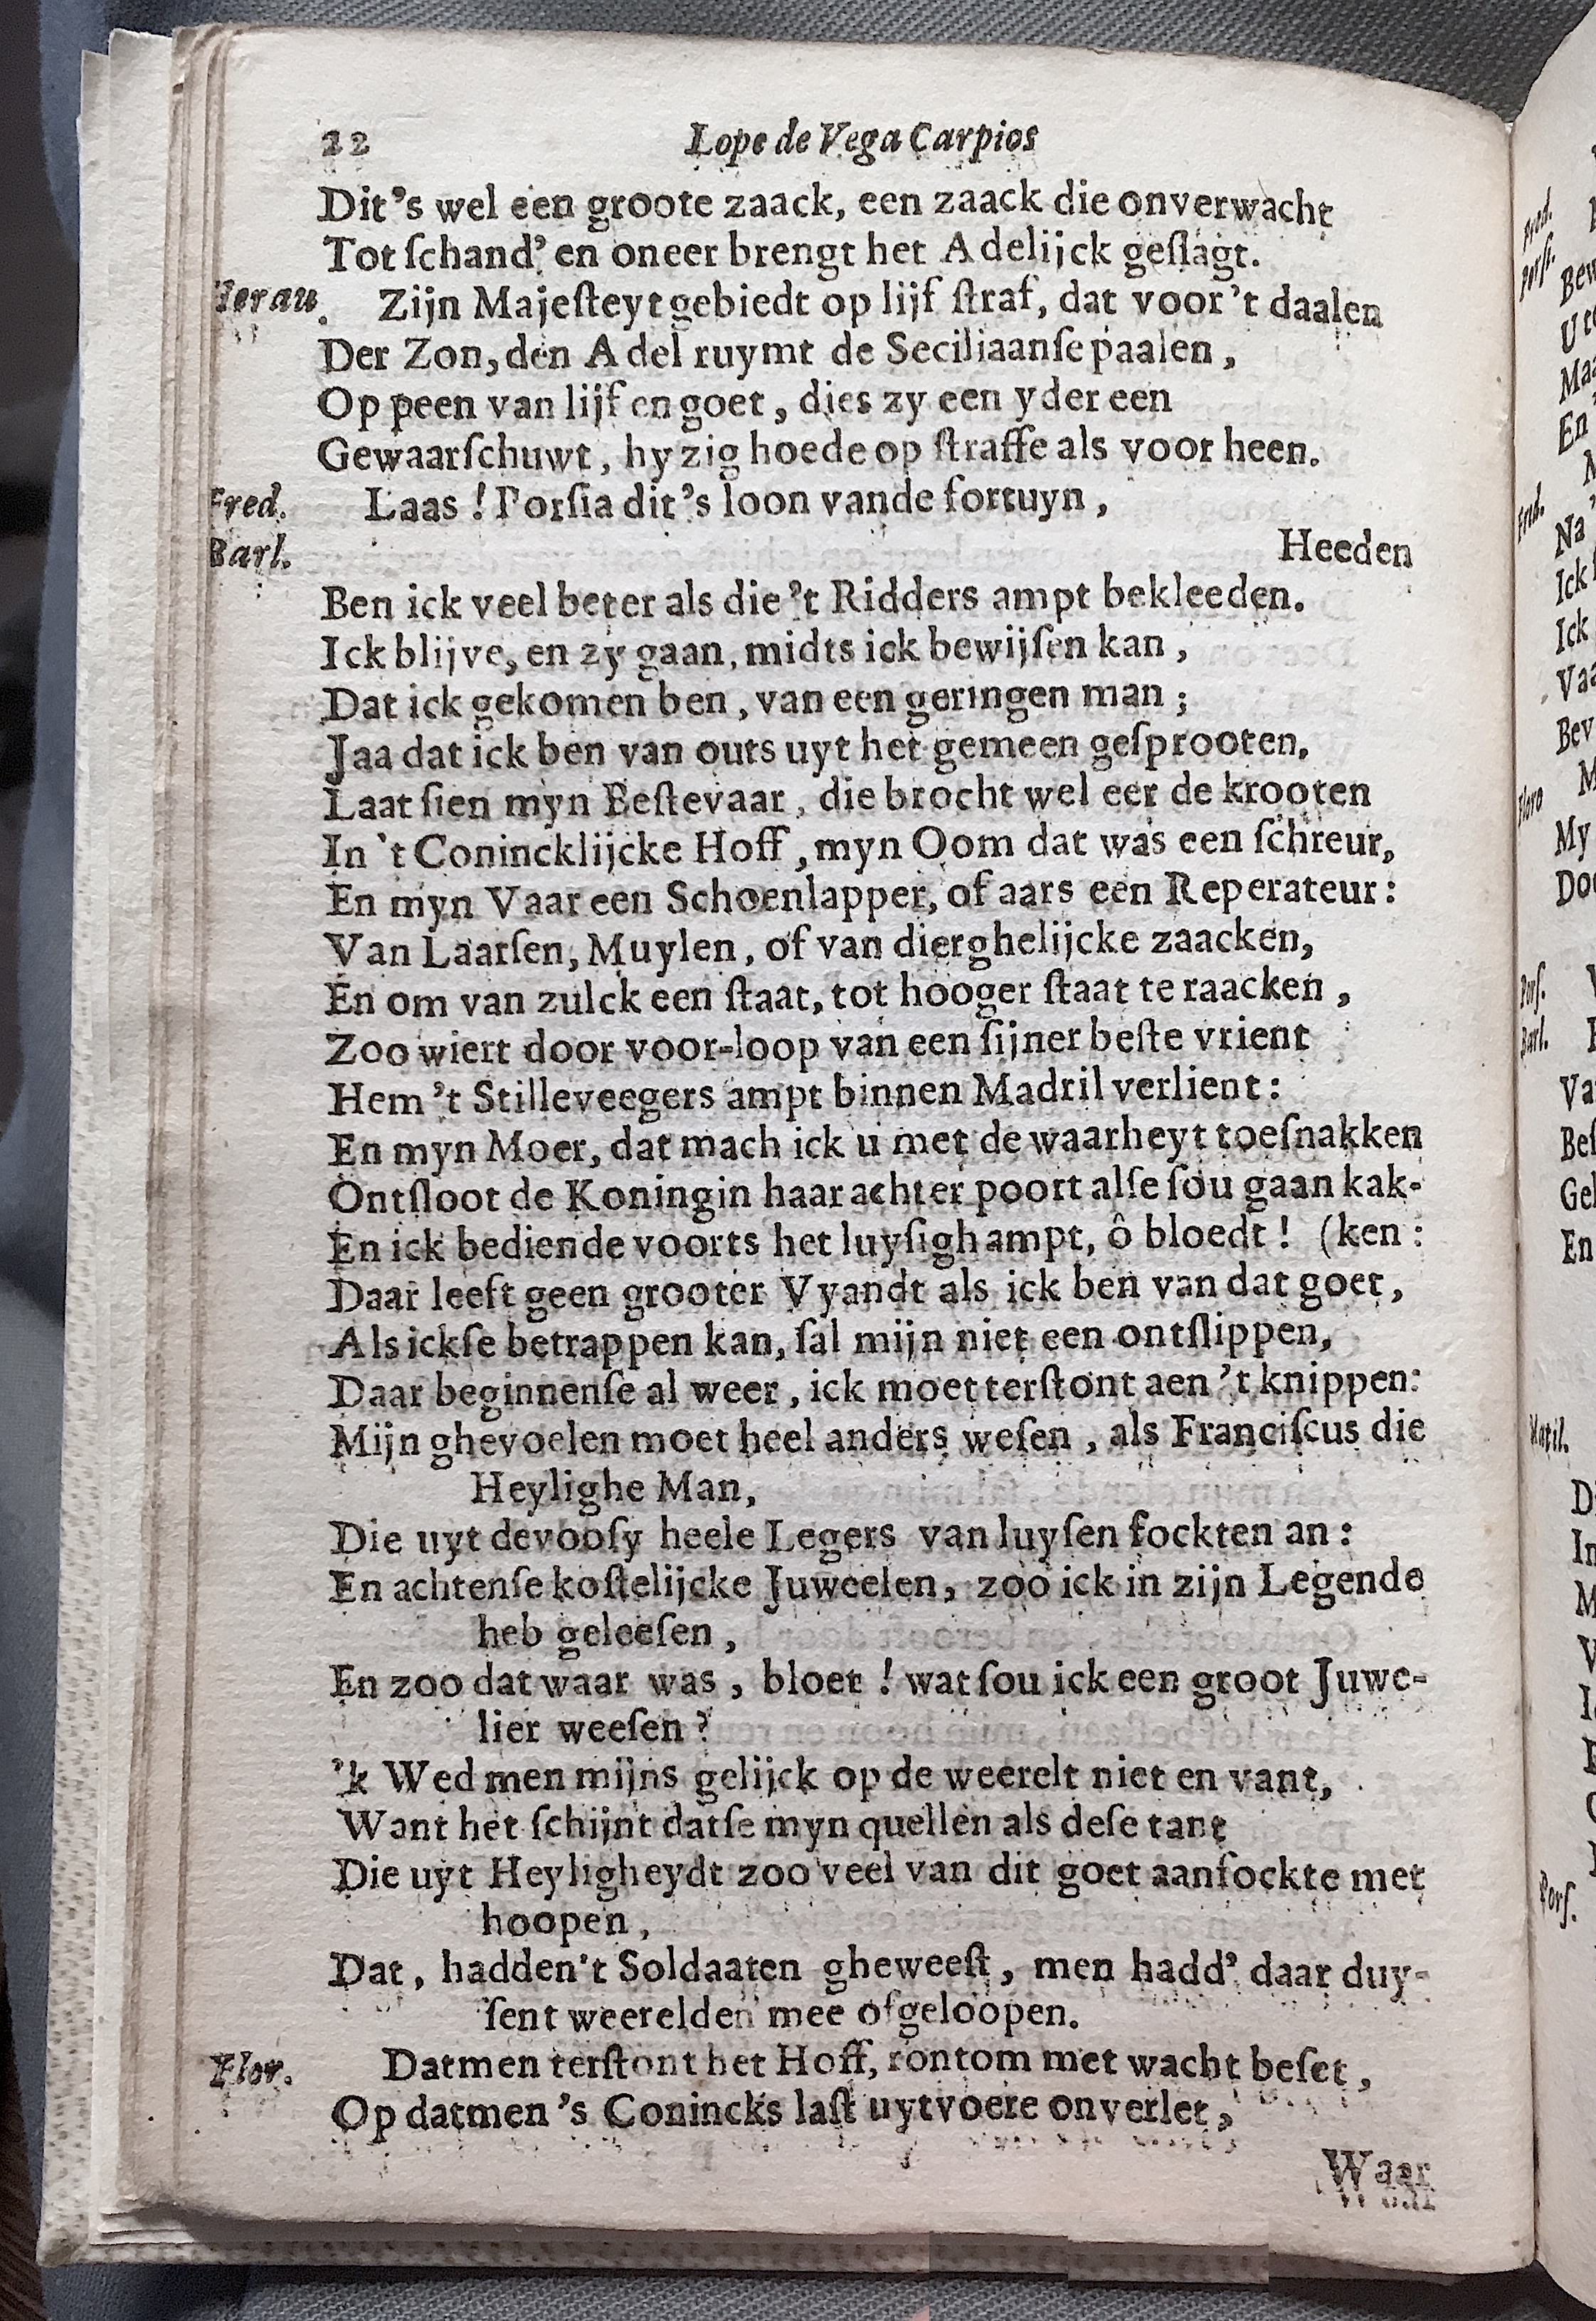 22 Lope de Vega Carpios
Dit’s wel een groote zaack, een zaack die onverwacht
Tot ſchand’ en oneer brengt het Adelijck geſlagt.
Herau. Zijn Majeſteyt gebiedt op lijf ſtraf, dat voor ’t daalen
Der Zon, den Adel ruymt de Seciliaanſe paalen,
Op peen van lijf en goet, dies zy een yder een
Gewaarſchuwt, hy zig hoede op ſtraffe als voor heen.
Fred. Laas! Porſia dit’s loon vande fortuyn,
Barl. Heeden
Ben ick veel beter als die ’t Ridders ampt bekleeden.
Ick blijve, en zy gaan, midts ick bewijſen kan,
Dat ick gekomen ben, van een geringen man;
Jaa dat ick ben van outs uyt het gemeen geſprooten,
Laat ſien myn Beſtevaar, die brocht wel eer de krooten
In ’t Conincklijcke Hoff, myn Oom dat was een ſchreur,
En myn Vaar een Schoenlapper, of aars een Reperateur:
Van Laarſen, Muylen, of van dierghelijcke zaacken,
En om van zulck een ſtaat, tot hooger ſtaat te raacken,
Zoo wiert door voor-loop van een ſijner beſte vrient
Hem ’t Stilleveegers ampt binnen Madril verlient:
En myn Moer, dat mach ick u met de waarheyt toeſnakken
Ontſloot de Koningin haar achter poort alſe ſou gaan kak-
En ick bediende voorts het luyſigh ampt, ô bloedt! (ken:
Daar leeft geen grooter Vyandt als ick ben van dat goet,
Als ickſe betrappen kan, ſal mijn niet een ontſlippen,
Daar beginnenſe al weer, ick moet terſtont aen ’t knippen:
Mijn ghevoelen moet heel anders weſen, als Franciſcus die
Heylighe Man,
Die uyt devooſy heele Legers van luyſen fockten an:
En achtenſe koſtelijcke Juweelen, zoo ick in zijn Legende
heb geleeſen,
En zoo dat waar was, bloet! wat ſou ick een groot Juwe-
lier weeſen?
’k Wed men mijns gelijck op de weerelt niet en vant,
Want het ſchijnt datſe myn quellen als deſe tant
Die uyt Heyligheydt zoo veel van dit goet aanfockte met
hoopen,
Dat, hadden’t Soldaaten gheweeſt, men hadd’ daar duy-
ſent weerelden mee ofgeloopen.
Flor. Datmen terſtont het Hoff, rontom met wacht beſet,
Op datmen ’s Conincks laſt uytvoere onverlet,
Waar